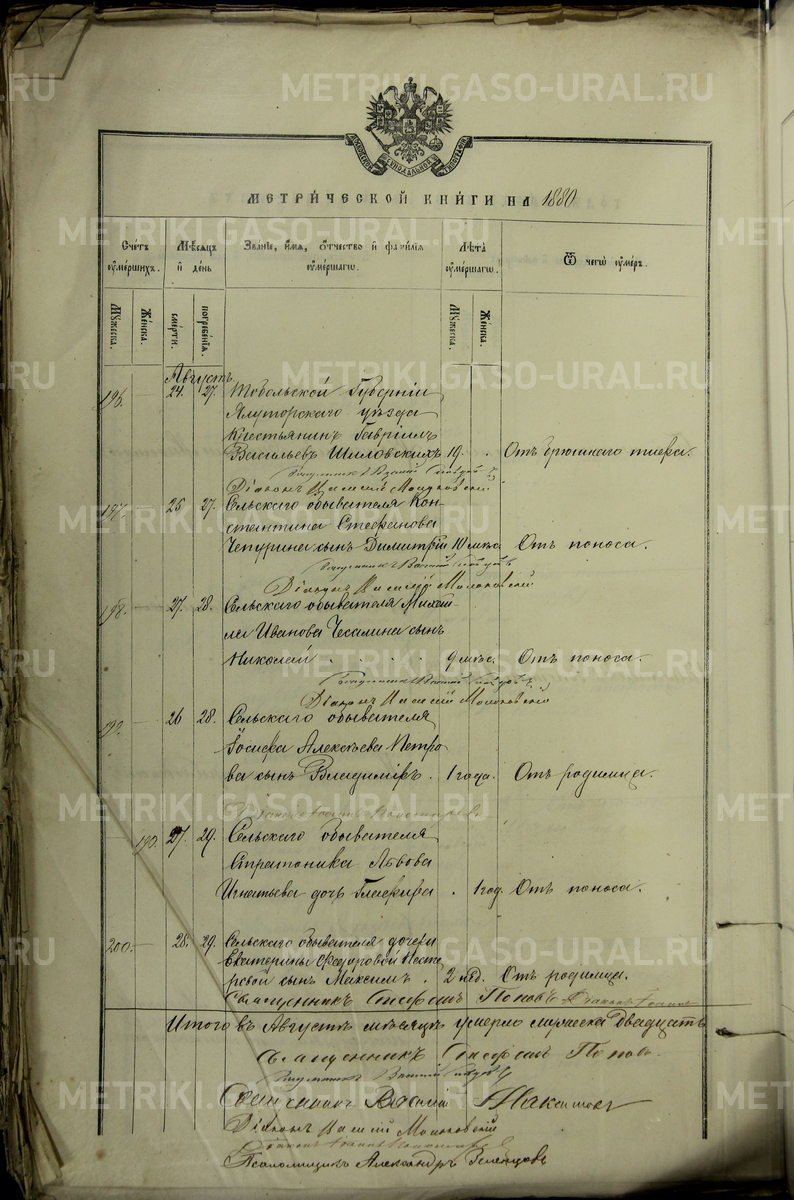 METRIKI.GASO-URAL.RU
МЕТРИЧЕСКОЙ КНИГИ НА 1880
Счетъ умершихъ.
Мѣсяцъ и день
Званіе, имя, отчество и фамилія умершаго.
Лѣта умершаго.
Ѿ чегѡ умеръ.
Мужеска.
Женска.
смерти.
погребенія.
Мужеска.
Женска.
Августъ
196. 24. 27. Тобольской Губерніи
Ялуторскаго уѣзда
Крестьянинъ Гавріилъ
Васильевъ Шиловскихъ 19. Отъ брюшнаго тифа.
Діаконъ
197. 25 27. Сельскаго обывателя Кон-
стантина Стефанова
Чепурина сынъ Димитрій 10 мѣс. Отъ поноса.
Діаконъ
198. 27. 28. Сельскаго обывателя Михаи-
ла Иванова Чесалина сынъ
Николай 9 мѣс. Отъ поноса.
Діаконъ
199. 26 28. Сельскаго обывателя
Іосифа Алексѣева Петро-
ва сынъ Владиміръ. 1 года. Отъ родимца.
190. 27. 29. Сельскаго обывателя
Стратоника Львова
Игнатьева дочь Глафира . 1 год. Отъ поноса.
200. 28. 29. Сельскаго обывателя дочери
Екатерины Федоровой Несте-
ровой сынъ Максимъ. 2 нед. Отъ родимца.
Священникъ Стефанъ Поповъ Діаконъ
Итого въ Августѣ мѣсяцѣ умерло мужеска Двадцать
Священникъ Стефанъ Поповъ
Священникъ
Діаконъ
Псаломщикъ Александръ Зеленцовъ